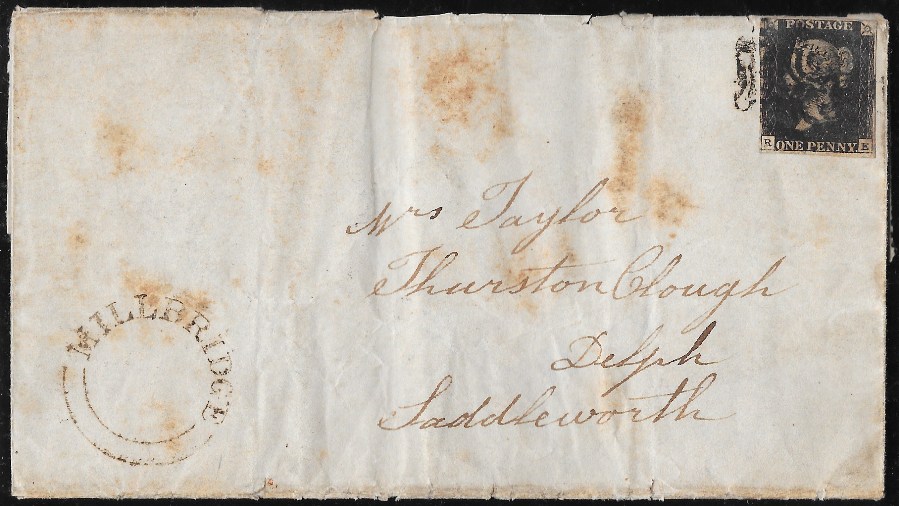 POSTAGE
R E
ONE PENNY.
Mrs Taylor
Thurston Clough
Delph
Saddleworth
MILLBRIDGE